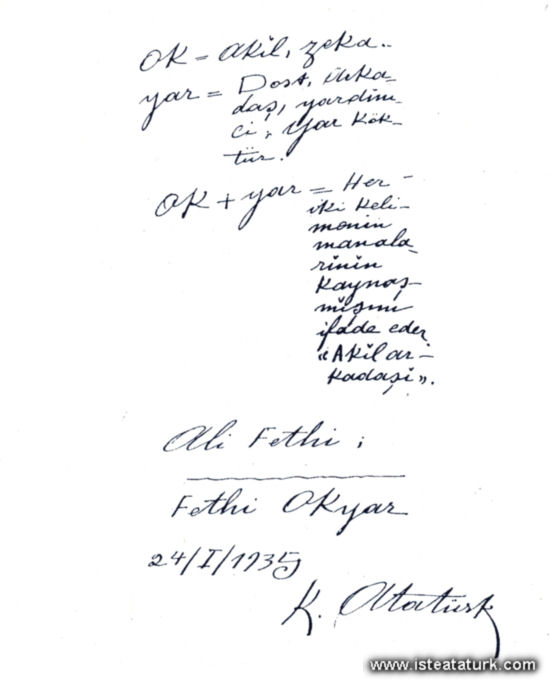 OK = Akil, zekâ..
yar = Dost, arka-
daş, yardim-
ci; Yar Kök-
tür.
OK + yar = Her-
iki keli-
menin
manala-
rinin
kaynaş-
mişini
ifade eder
«Akil ar-
kadaşi».
Ali Fethi;
Fethi OKyar
24/I/1935
K. Atatürk
www.isteataturk.com